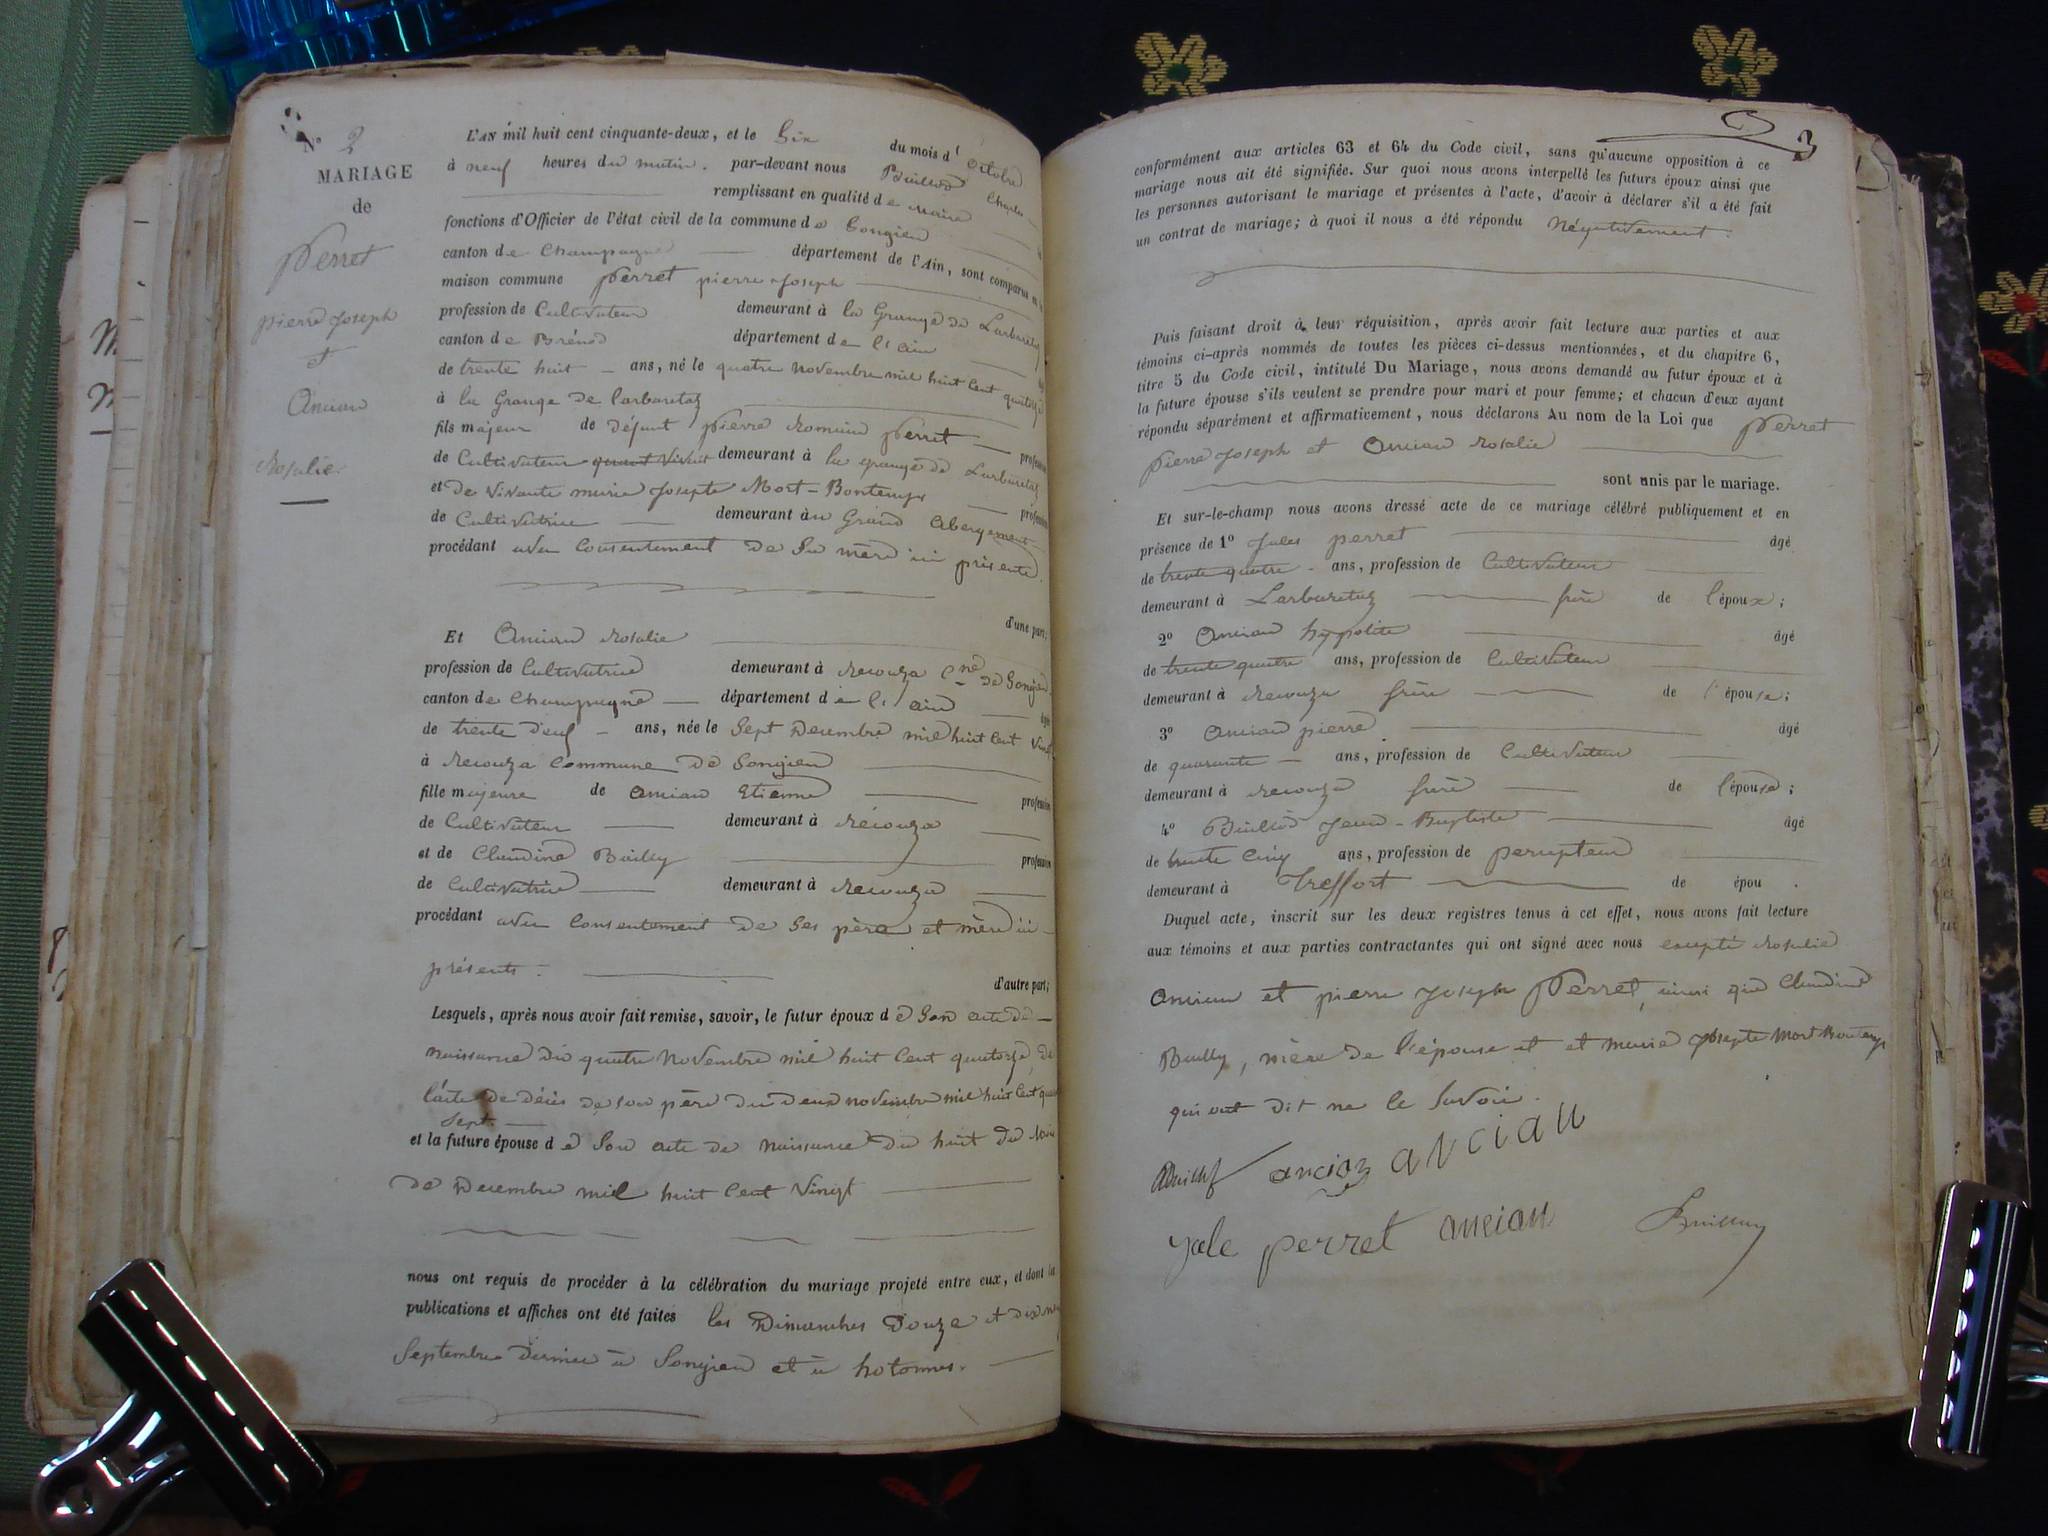 N° 2
MARIAGE
de
Perret
pierre Joseph
et
Ancian
Rosalie.
L'AN mil huit cent cinquante-deux, et le Six du mois d' Octobre
à neuf heures du matin. par-devant nous Charles
remplissant en qualité de Maire
fonctions d'Officier de l'état civil de la commune de Songieu
canton de Champagne département de l'Ain, sont comparus
maison commune Perret pierre Joseph
profession de Cultivateur demeurant à la Grange de Larbaretaz
canton de Brénod département de l'ain
de trente huit ans, né le quatre novembre mil huit Cent quatorze
à la Grange de Larbaretaz
fils majeur de défunt pierre Romain Perret
de Cultivateur quant Vivait demeurant à la grange de Larbaretaz
et de Vivante marie Josepte Mort-Bontemps
de Cultivatrice demeurant au Grand Abergement
procédant avec Consentement de Sa mère ici présente.
d'une part;
Et Ancian Rosalie
profession de Cultivatrice demeurant à Recouza Cne de Songieu
canton de Champagne département de l'ain
de trente deux ans, née le Sept Decembre mil huit Cent Vingt
à Recouza Commune de Songieu
fille majeure de Ancian Etienne
de Cultivateur demeurant à Recouza
et de Claudine Bailly profession
de Cultivatrice demeurant à Recouza
procédant avec Consentement de Ses père et mère ici
présents.
d'autre part;
Lesquels, après nous avoir fait remise, savoir, le futur époux de Son acte de
naissance du quatre Novembre mil huit Cent quatorze, de
l'acte de décès de son père du deux novembre mil huit Cent
Sept
et la future épouse de Son acte de naissance du huit du Mois
de Decembre mil huit Cent Vingt
nous ont requis de procéder à la célébration du mariage projeté entre eux, et dont les
publications et affiches ont été faites les Dimanches Douze et dix neuf
Septembre Dernier à Songieu et à hotonnes.
3
conformément aux articles 63 et 64 du Code civil, sans qu'aucune opposition à ce
mariage nous ait été signifiée. Sur quoi nous avons interpellé les futurs époux ainsi que
les personnes autorisant le mariage et présentes à l'acte, d'avoir à déclarer s'il a été fait
un contrat de mariage; à quoi il nous a été répondu Négativement.
Puis faisant droit à leur réquisition, après avoir fait lecture aux parties et aux
témoins ci-après nommés de toutes les pièces ci-dessus mentionnées, et du chapitre 6,
titre 5 du Code civil, intitulé Du Mariage, nous avons demandé au futur époux et à
la future épouse s'ils veulent se prendre pour mari et pour femme; et chacun d'eux ayant
répondu séparément et affirmativement, nous déclarons Au nom de la Loi que Perret
pierre Joseph et Ancian Rosalie
sont unis par le mariage.
Et sur-le-champ nous avons dressé acte de ce mariage célébré publiquement et en
présence de 1° Jules perret âgé
de trente quatre ans, profession de Cultivateur
demeurant à Larbaretaz frère de l'époux;
2° Ancian hypolite âgé
de trente quatre ans, profession de Cultivateur
demeurant à Recouza frère de l'épouse;
3° Ancian pierre âgé
de quarante ans, profession de Cultivateur
demeurant à Recouza frère de l'épouse;
4° Jean-Baptiste âgé
de trente Cinq ans, profession de percepteur
demeurant à Treffort de épou .
Duquel acte, inscrit sur les deux registres tenus à cet effet, nous avons fait lecture
aux témoins et aux parties contractantes qui ont signé avec nous excepté Rosalie
Ancian et pierre Joseph Perret, ainsi que Claudine
Bailly, mère de l'épouse et et marie Josepte Mort Bontemps
qui ont dit ne le Savoir.
ancian ancian
Jule perret ancian